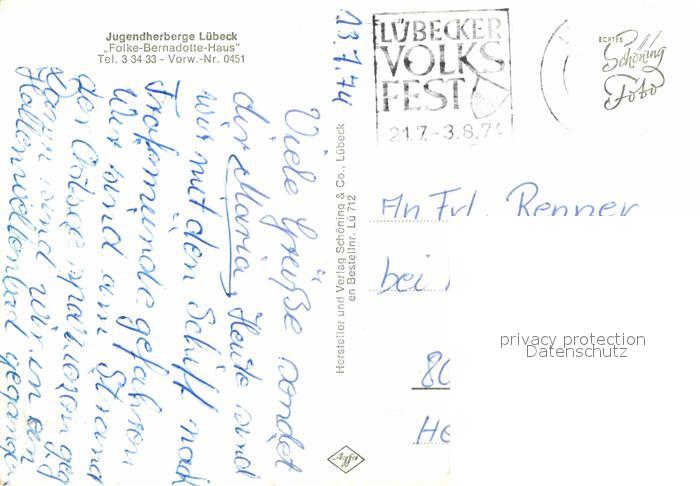 Jugendherberge Lübeck
„Folke-Bernadotte-Haus"
Tel. 3 34 33 - Vorw.-Nr. 0451
23.7.74
Viele Grüße sendet
dir Maria, Heute sind
wir mit den Schiff nach
Trafemünde gefahren
Wir sind am Strand
der Ostsee spazieren geg
Dann sind wir in ein
Hallenwellenbad gegangen
Hersteller und Verlag Schöning & Co., Lübeck
en Bestellnr. Lü 712
Agfa
LÜBECKER
VOLKS
FEST
21.7.-3.8.74
ECHTES
Schöning
Foto
An Frl. Renner
bei
80
He
privacy protection
Datenschutz